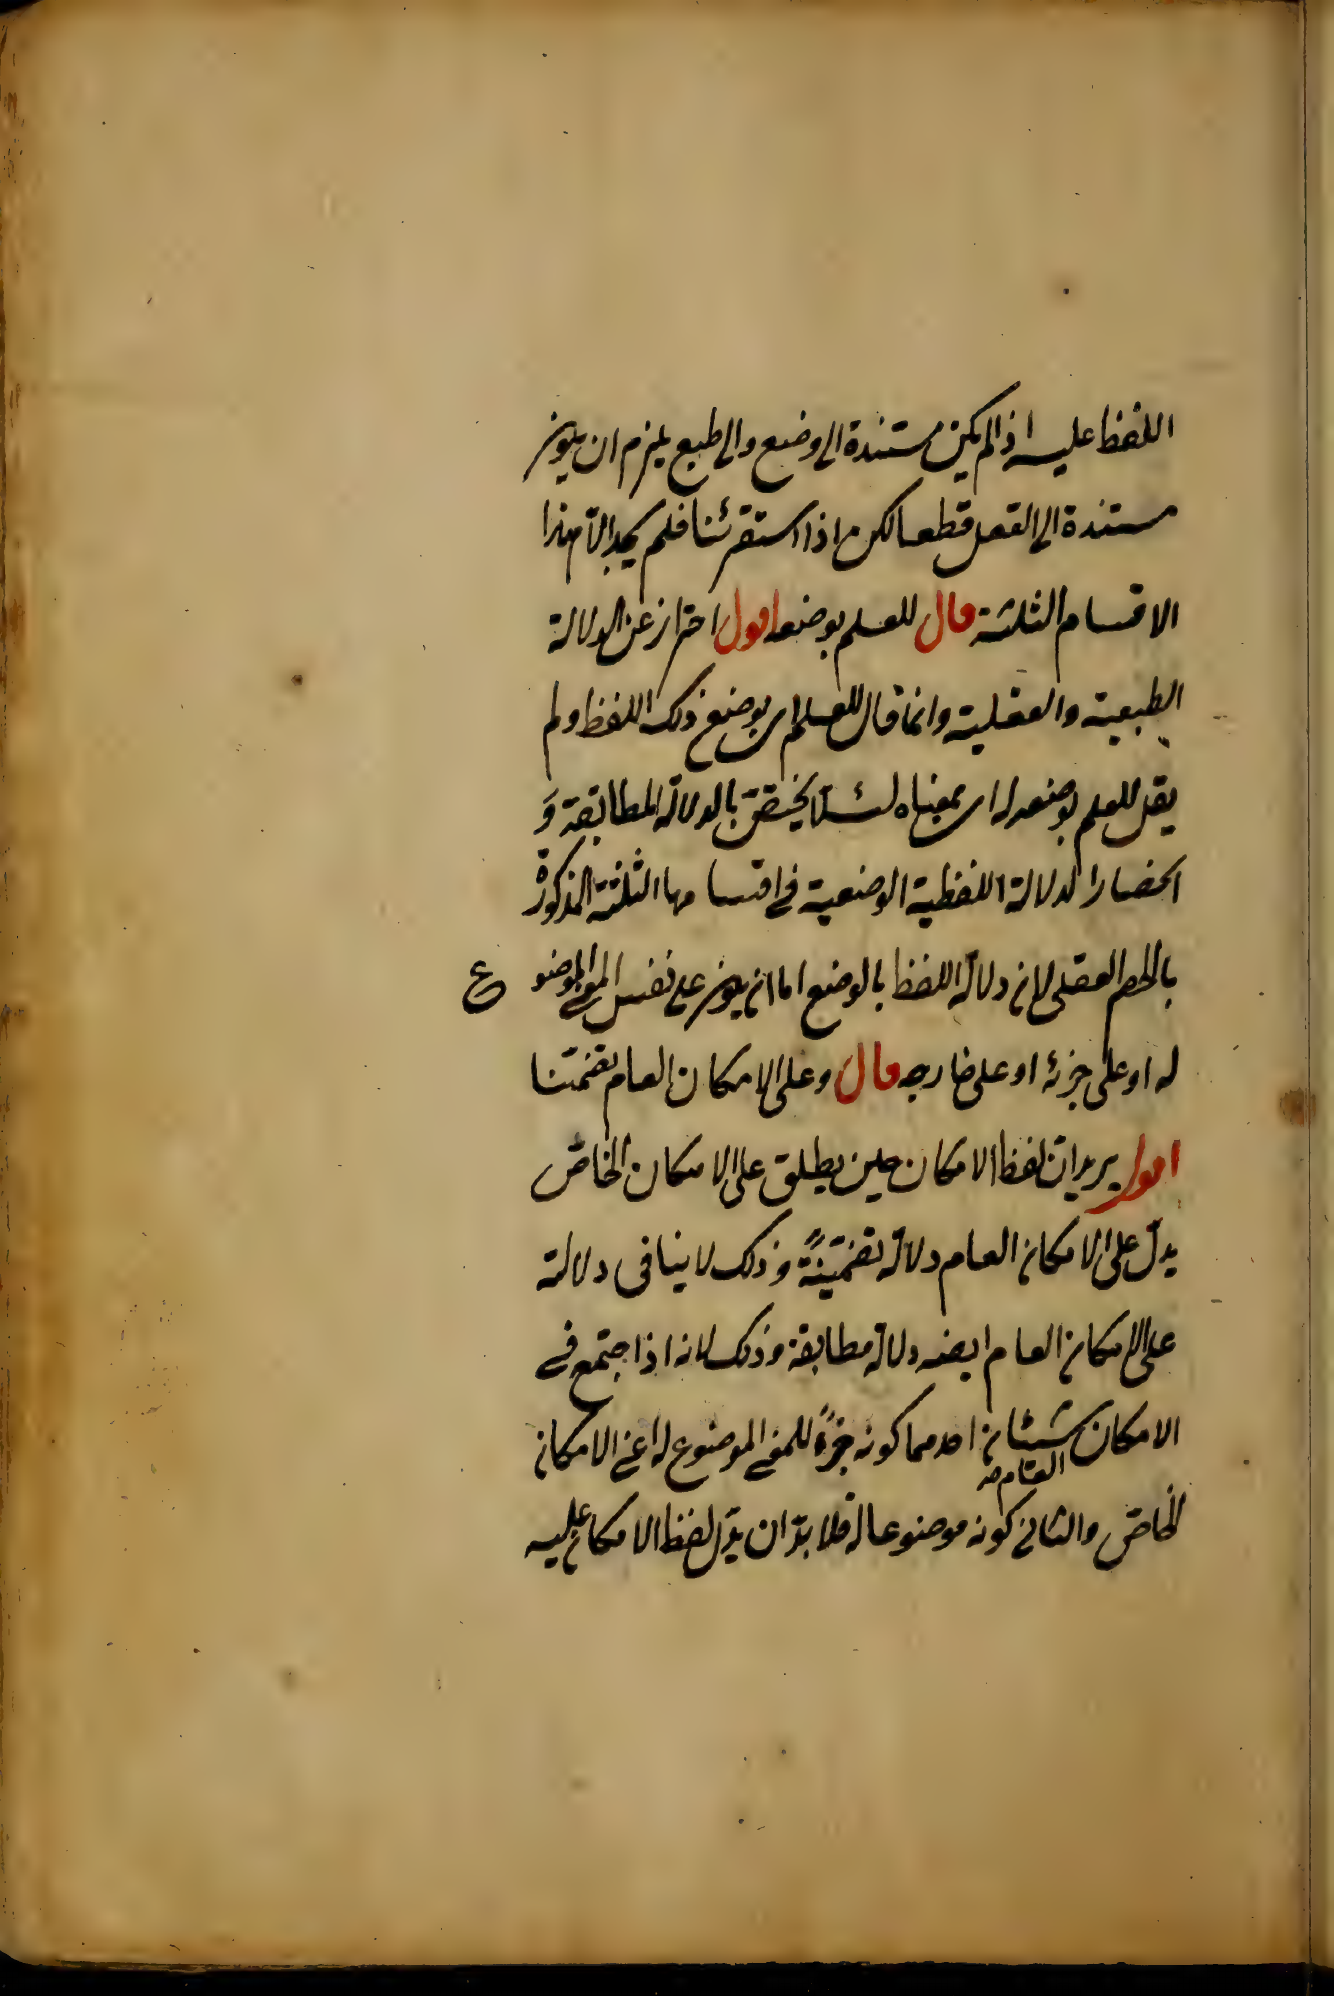 اللفظ عليه اذا لم يكن مستندة الى وضع والى طبع يلزم ان يكون
مستندة الى العقل قطعا لكن اذا استقرئنا فلم يجد الا هذا
الاقسام الثلثة قال للعلم بوضعه اقول احتراز عن الدلالة
الطبيعية والعقلية وانما قال للعلم اى بوضع ذلك اللفظ ولم
يقل للعلم بوضعه له اى بمعناه لئلا يختص بالدلالة المطابقة و
انحصار الدلالة اللفظية الوضعية في اقسامها الثلثة المذكورة
بالحصر العقلى لان دلالة اللفظ بالوضع اما ان يكون على نفس المعنى الموضوع
له او على جزئه او على خارجه قال وعلى الامكان العام تضمنا
اقول يريد ان لفظ الامكان حين يطلق على الامكان الخاص
يدل على الامكان العام دلالة تضمنية وذلك لا ينافى دلالته
على الامكان العام ايضه دلالة مطابقة وذلك لانه اذا اجتمع في
الامكان شيئان احدهما كونه جزءً للمعنى الموضوع له اعنى الامكان
العام صه
الخاص والثانى كونه موضوعا له فلا بد ان يدل لفظ الامكان عليه